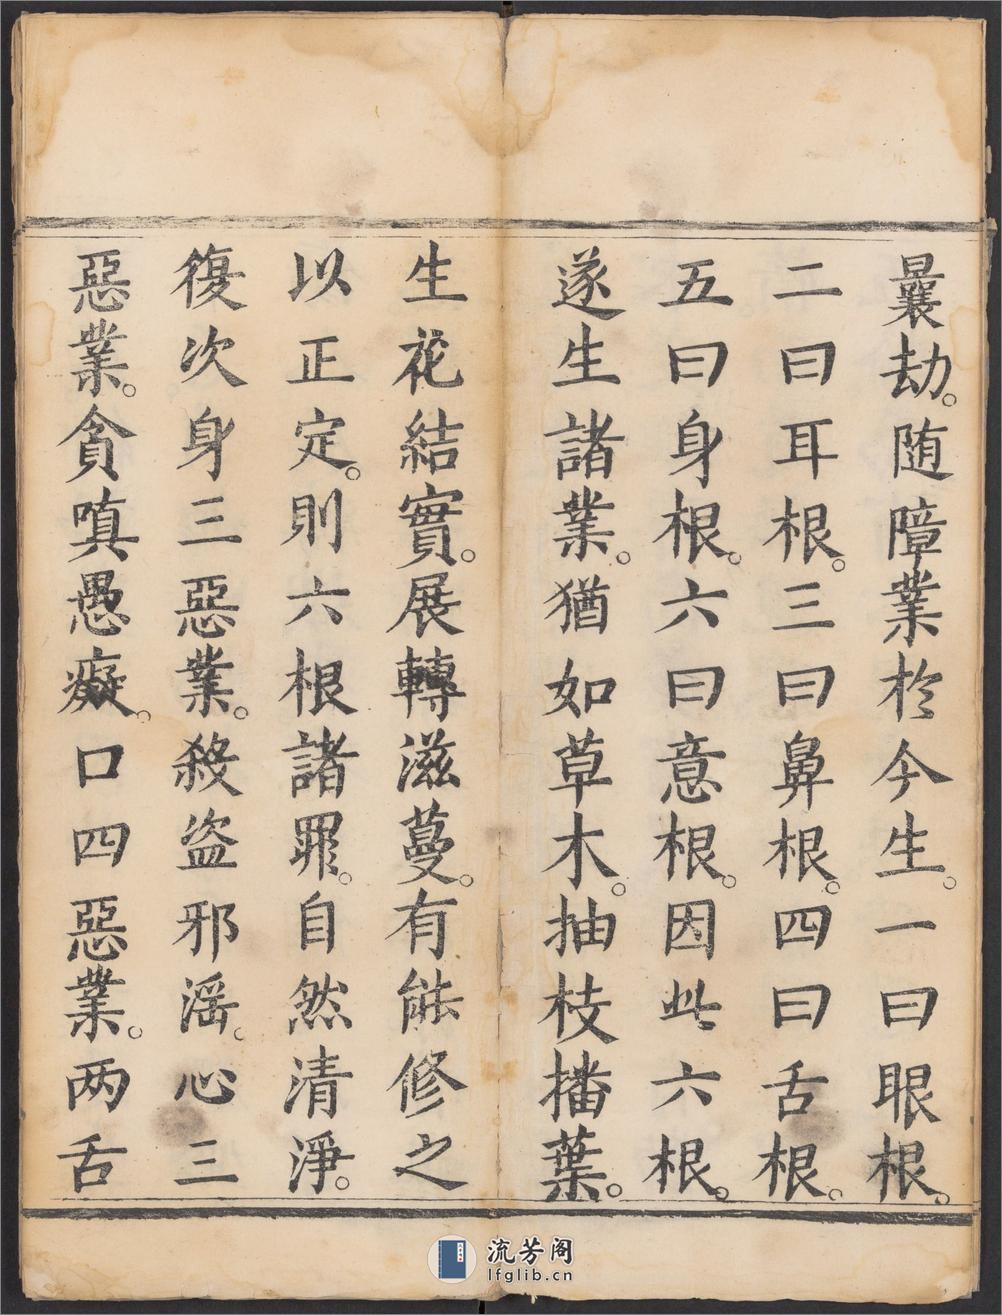 曩劫。随障業於今生。一曰眼根。
二曰耳根。三曰鼻根。四曰舌根。
五曰身根。六曰意根。因此六根。
遂生諸業。猶如草木。抽枝播葉。
生花結實。展轉滋蔓。有能修之
以正定。則六根諸罪。自然清淨。
復次身三惡業。殺盗邪滛。心三
惡業。貪嗔愚癡。口四惡業。两舌
流芳阁
lfglib.cn